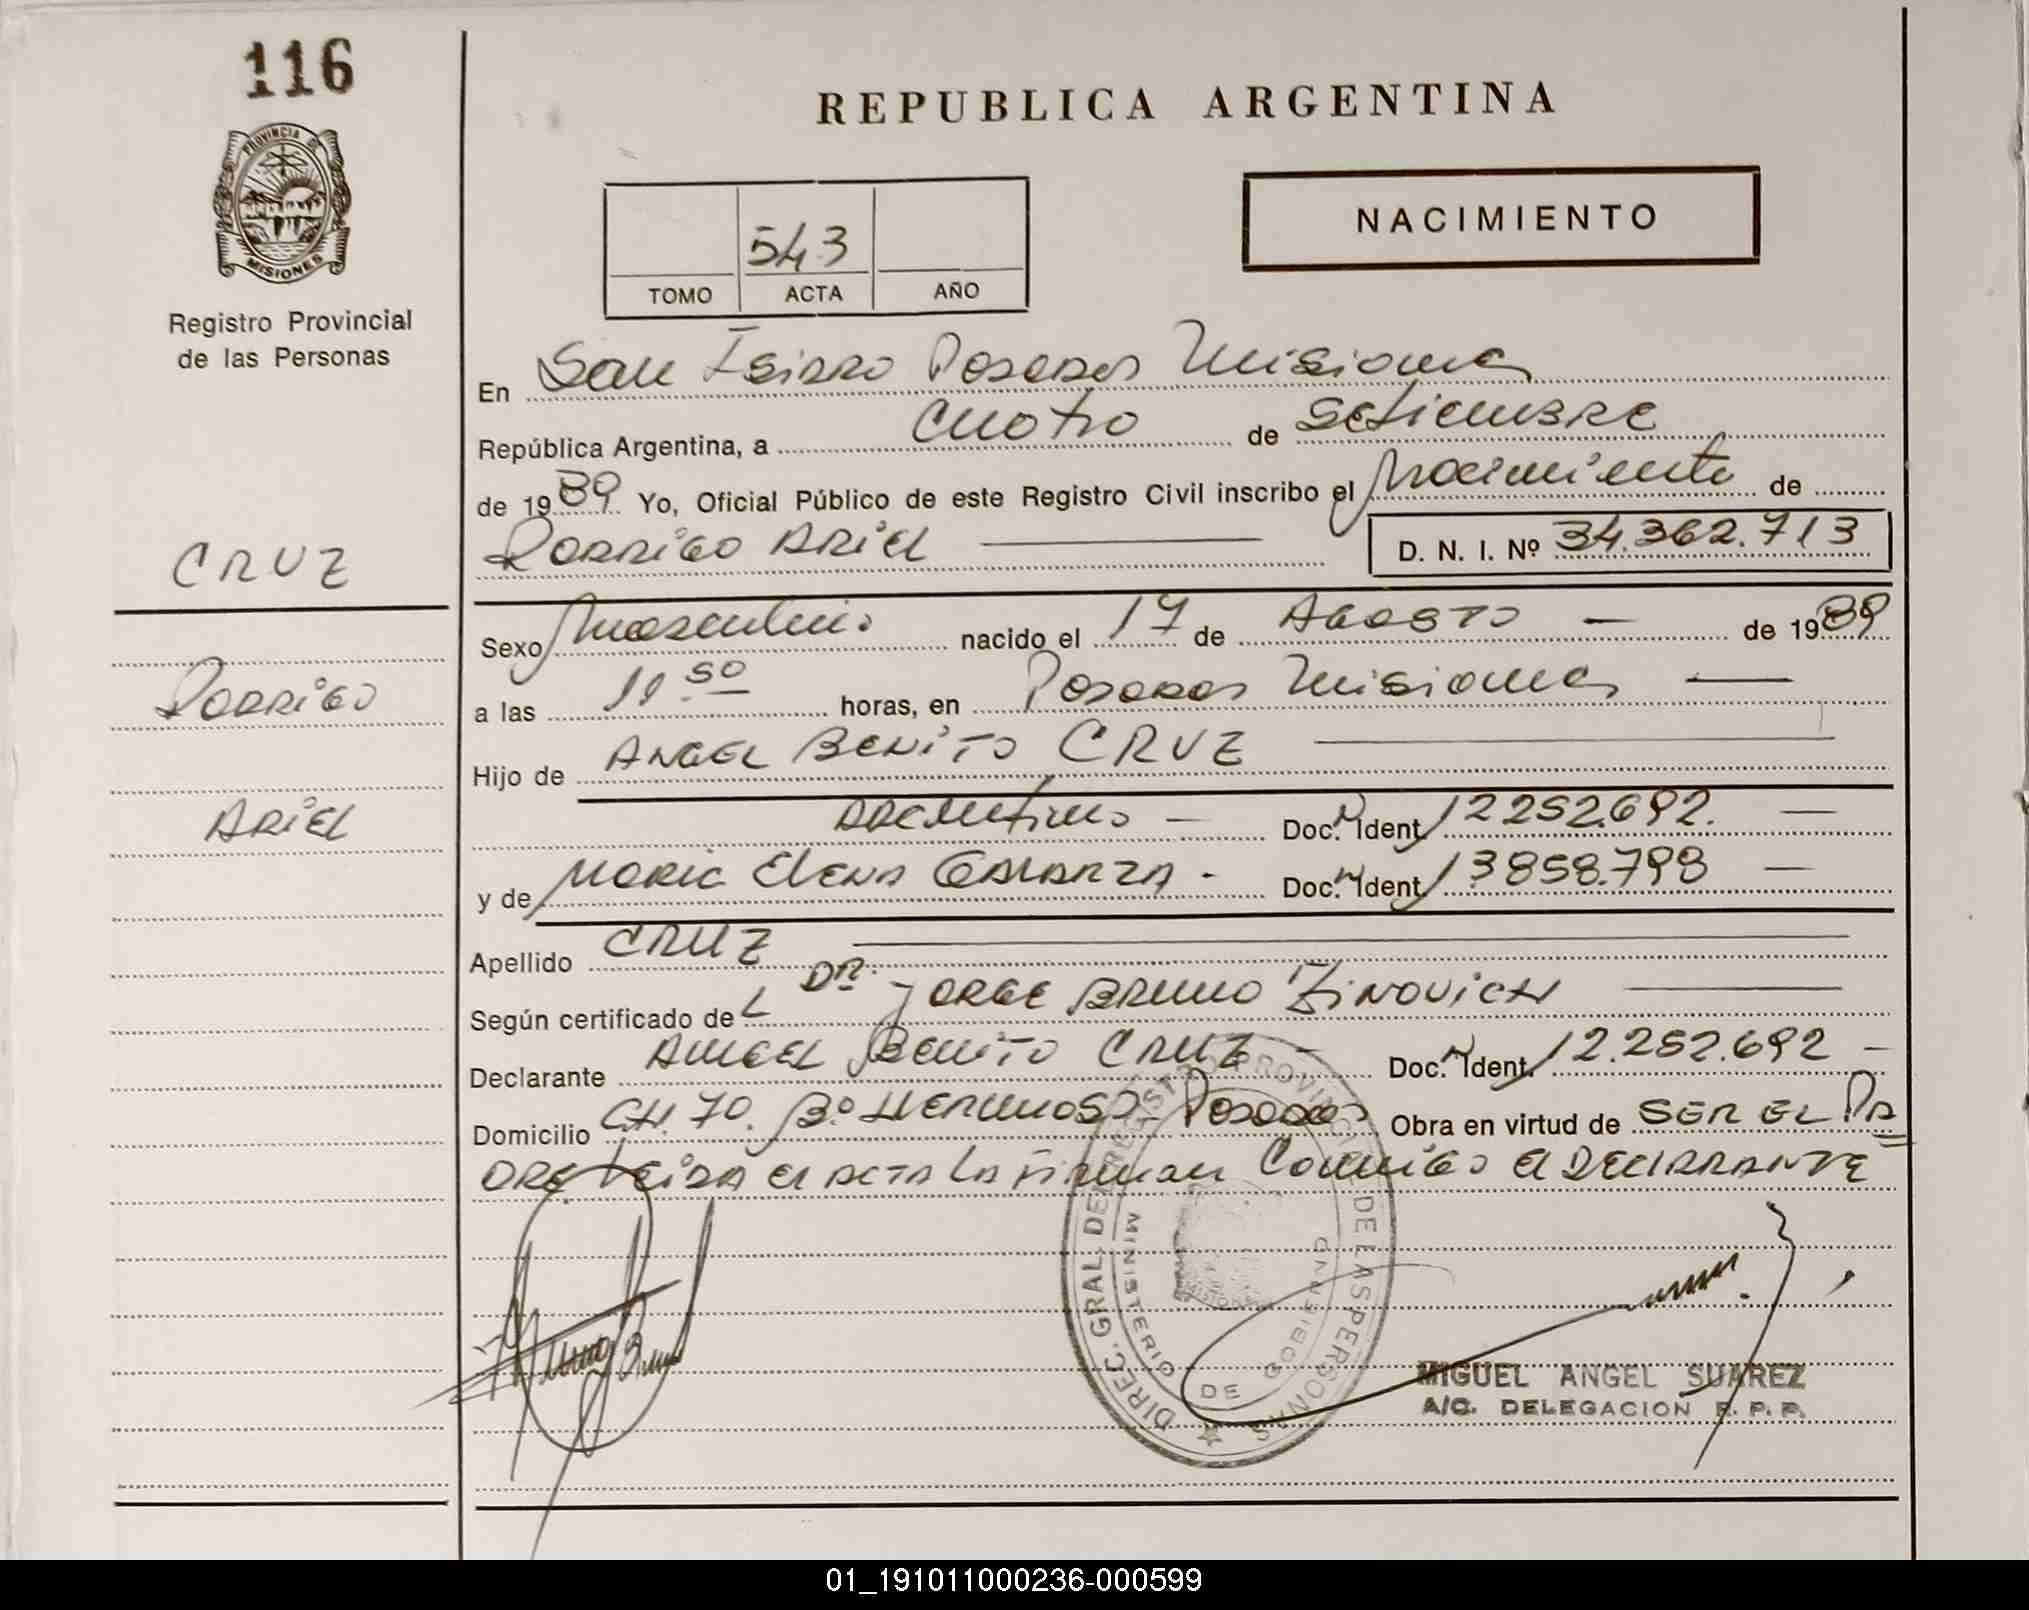 116
PROVINCIA DE
MISIONES
Registro Provincial
de las Personas
CRUZ
Rodrigo
Ariel
REPUBLICA ARGENTINA
NACIMIENTO
543
TOMO ACTA AÑO
En San Isidro Posadas Misiones
República Argentina, a cuatro de Setiembre
de 1989 Yo, Oficial Público de este Registro Civil inscribo el Nacimiento de
Rodrigo Ariel D. N. I. Nº 34.362.713
Sexo Masculino nacido el 17 de Agosto de 1989
a las 11 50 horas, en Posadas Misiones
Hijo de Angel Benito CRUZ
Argentino Doc. Ident. 12.252.692.
y de Maria Elena Galarza Doc. Ident. 13.858.798
Apellido CRUZ
Según certificado del Dr. Jorge Bruno Zinovich
Declarante Angel Benito Cruz Doc. Ident. 12.252.692
Domicilio CH. 70. Bº Hermoso Posadas Obra en virtud de ser el Pa
dre Leida el acta la firman conmigo el declarante
DIREC. GRAL. DEL REGISTRO PROVINCIAL DE LAS PERSONAS
MINISTERIO DE GOBIERNO
MISIONES
MIGUEL ANGEL SUAREZ
A/C. DELEGACION R. P. P.
01_191011000236-000599